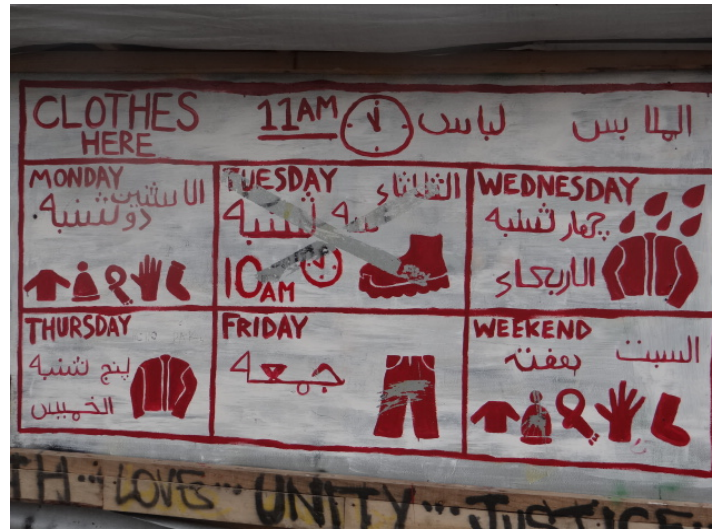 CLOTHES HERE
11AM
لباس
الملابس
MONDAY
الاثنين
دوشنبه
TUESDAY
الثلاثاء
سه شنبه
10AM
WEDNESDAY
چهار شنبه
الاربعاء
THURSDAY
پنج شنبه
الخميس
FRIDAY
جمعه
WEEKEND
السبت
هفته
TH... LOVE... UNITY... JUSTICE